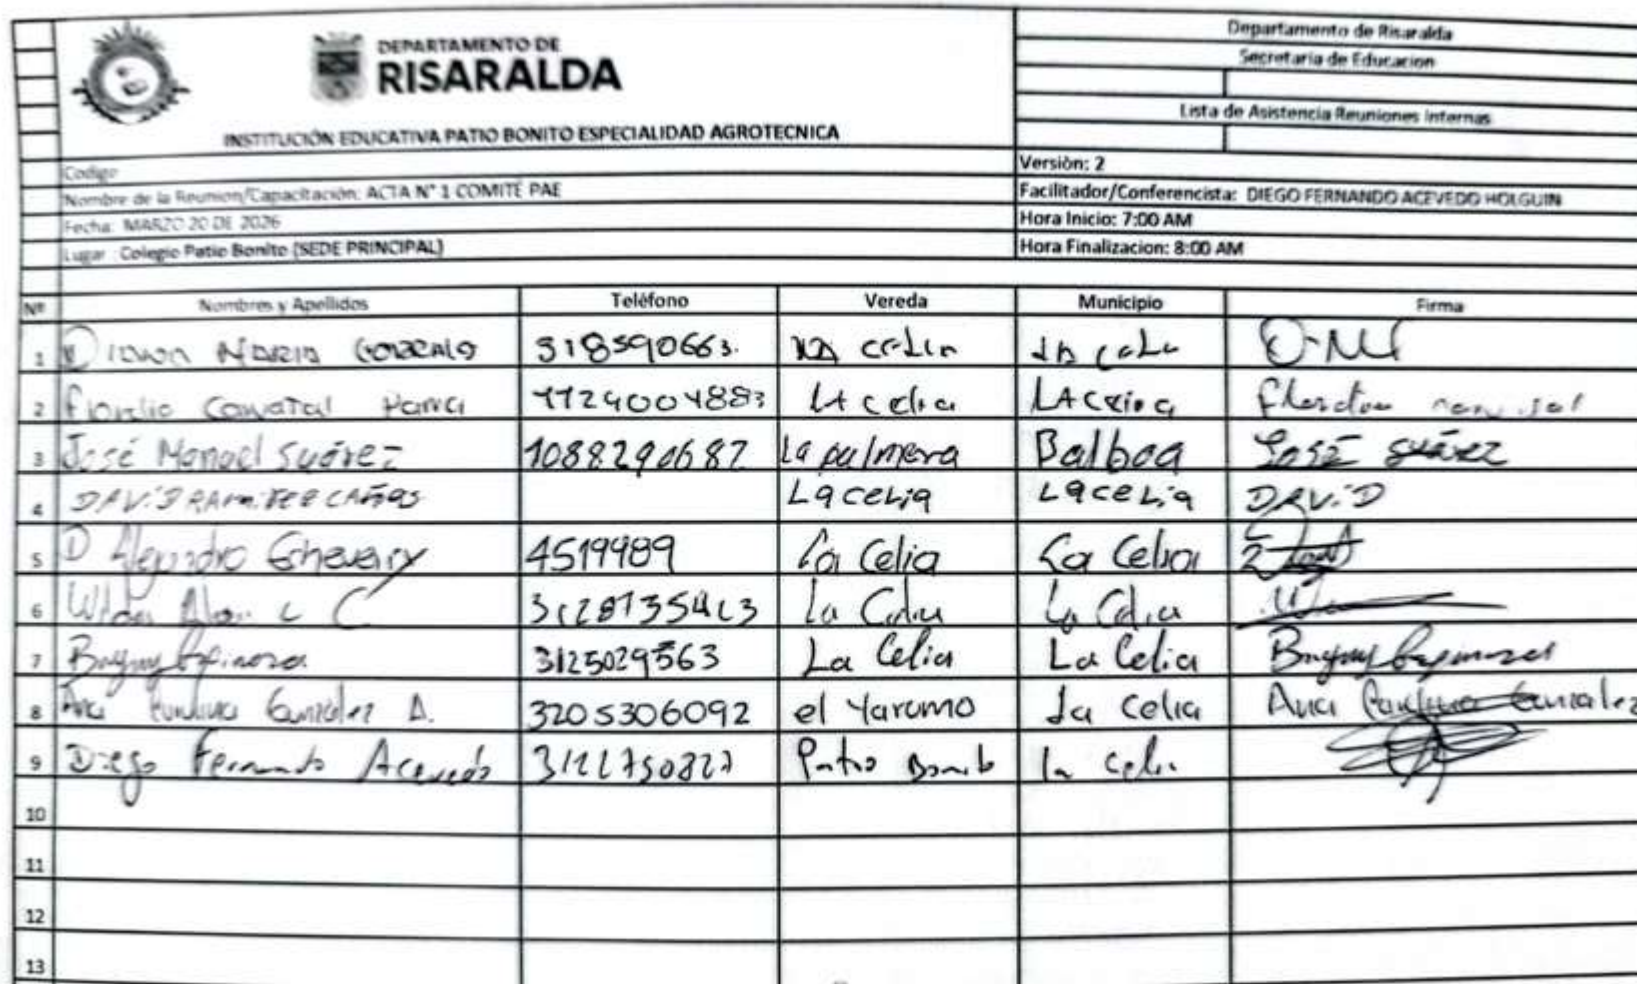 DEPARTAMENTO DE
RISARALDA
INSTITUCIÓN EDUCATIVA PATIO BONITO ESPECIALIDAD AGROTECNICA
Departamento de Risaralda
Secretaria de Educacion
Lista de Asistencia Reuniones Internas
Codigo Versiòn: 2
Nombre de la Reunion/Capacitación: ACTA N° 1 COMITÉ PAE Facilitador/Conferencista: DIEGO FERNANDO ACEVEDO HOLGUIN
Fecha: MARZO 20 DE 2026 Hora Inicio: 7:00 AM
Lugar : Colegio Patio Bonito (SEDE PRINCIPAL) Hora Finalizacion: 8:00 AM
Nº Nombres y Apellidos Teléfono Vereda Municipio Firma
1 Maria 318590663. La Celia La Celia
2 LA celia LA celia
3 José Manoel Suárez La palmera Balboa José Suárez
4 DAViD RAMiREZ CAÑAS LaceLia LaceLia DAViD
5 D Alejandro 4519989 La Celia La Celia
6 La Celia La Celia
7 Espinoza 3125029563 La Celia La Celia
8 Ana González A. 3205306092 el Yarumo La Celia Ana González
9 Diego Fernando Acevedo Patio Bonito la Celia
10
11
12
13